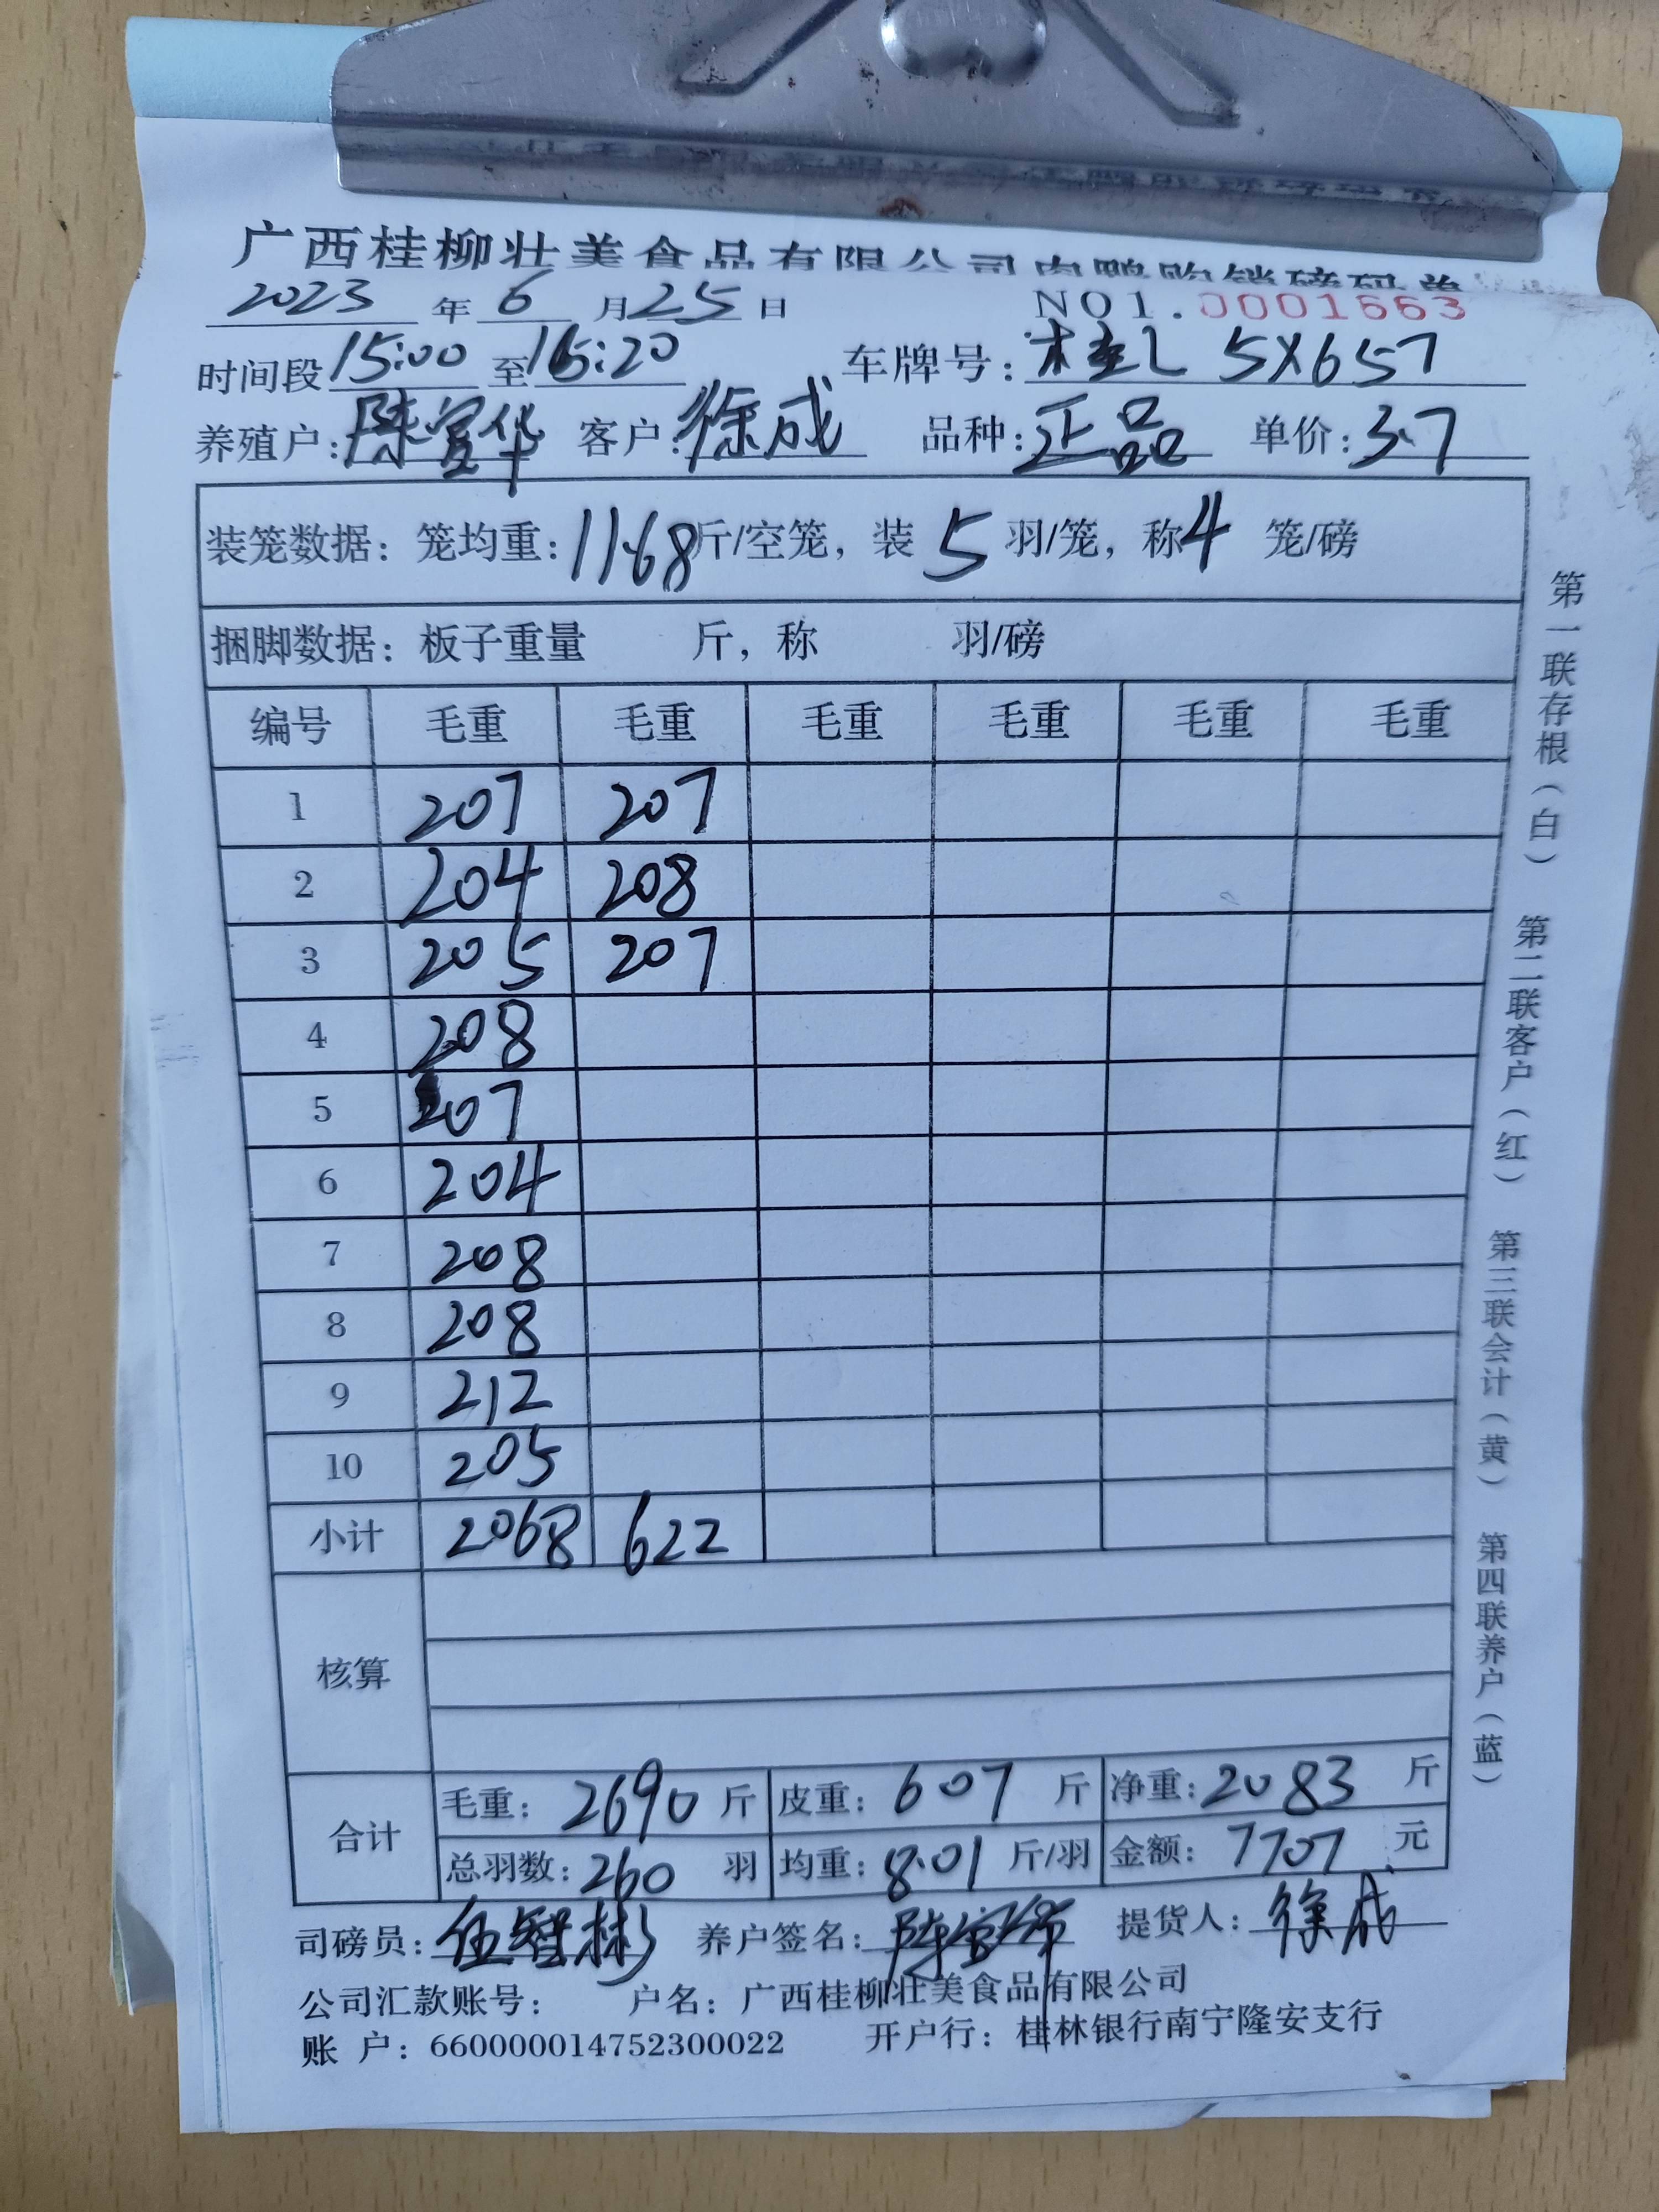 广西桂柳壮美食品有限公司肉鸭购销磅码单
2023 年 6 月 25 日 NO1.0001663
时间段 15:00 至 16:20 车牌号: 桂L 5X657
养殖户: 陈宣华 客户: 徐成 品种: 正品 单价: 3.7
装笼数据: 笼均重: 11.68 斤/空笼, 装 5 羽/笼, 称 4 笼/磅
捆脚数据: 板子重量 斤, 称 羽/磅
编号 毛重 毛重 毛重 毛重 毛重 毛重
1 207 207
2 204 208
3 205 207
4 208
5 207
6 204
7 208
8 208
9 212
10 205
小计 2068 622
核算
合计 毛重: 2690 斤 皮重: 607 斤 净重: 2083 斤
总羽数: 260 羽 均重: 8.01 斤/羽 金额: 7707 元
司磅员: 伍智彬 养户签名: 陈宣华 提货人: 徐成
公司汇款账号: 户名: 广西桂柳壮美食品有限公司
账 户: 660000014752300022 开户行: 桂林银行南宁隆安支行
第一联存根(白) 第二联客户(红) 第三联会计(黄) 第四联养户(蓝)